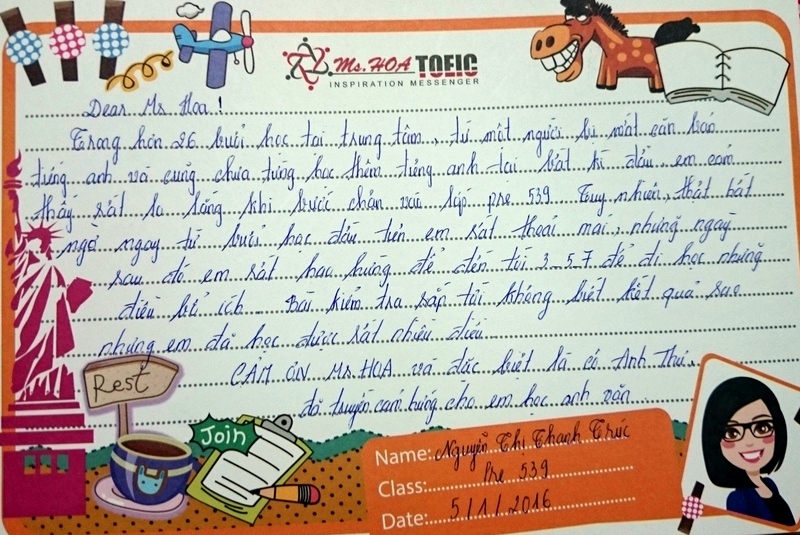 Ms.HOA TOEIC
INSPIRATION MESSENGER
Dear Ms Hoa !
Trong hơn 26 buổi học tại trung tâm, từ một người bị mất căn bản
tiếng anh và cũng chưa từng học thêm tiếng anh tại bất kì đâu, em cảm
thấy rất lo lắng khi bước chân vào lớp pre 539. Tuy nhiên, thật bất
ngờ ngay từ buổi học đầu tiên em rất thoải mái, những ngày
sau đó em rất hào hứng để đến tối 3-5-7 để đi học những
điều bổ ích... Bài kiểm tra sắp tới không biết kết quả sao
nhưng em đã học được rất nhiều điều
CẢM ƠN Ms.HOA và đặc biệt là cô Anh Thư,
đã truyền cảm hứng cho em học anh văn
Rest
Join
Name: Nguyễn Thị Thanh Trúc
Class: Pre 539
Date: 5/1/2016